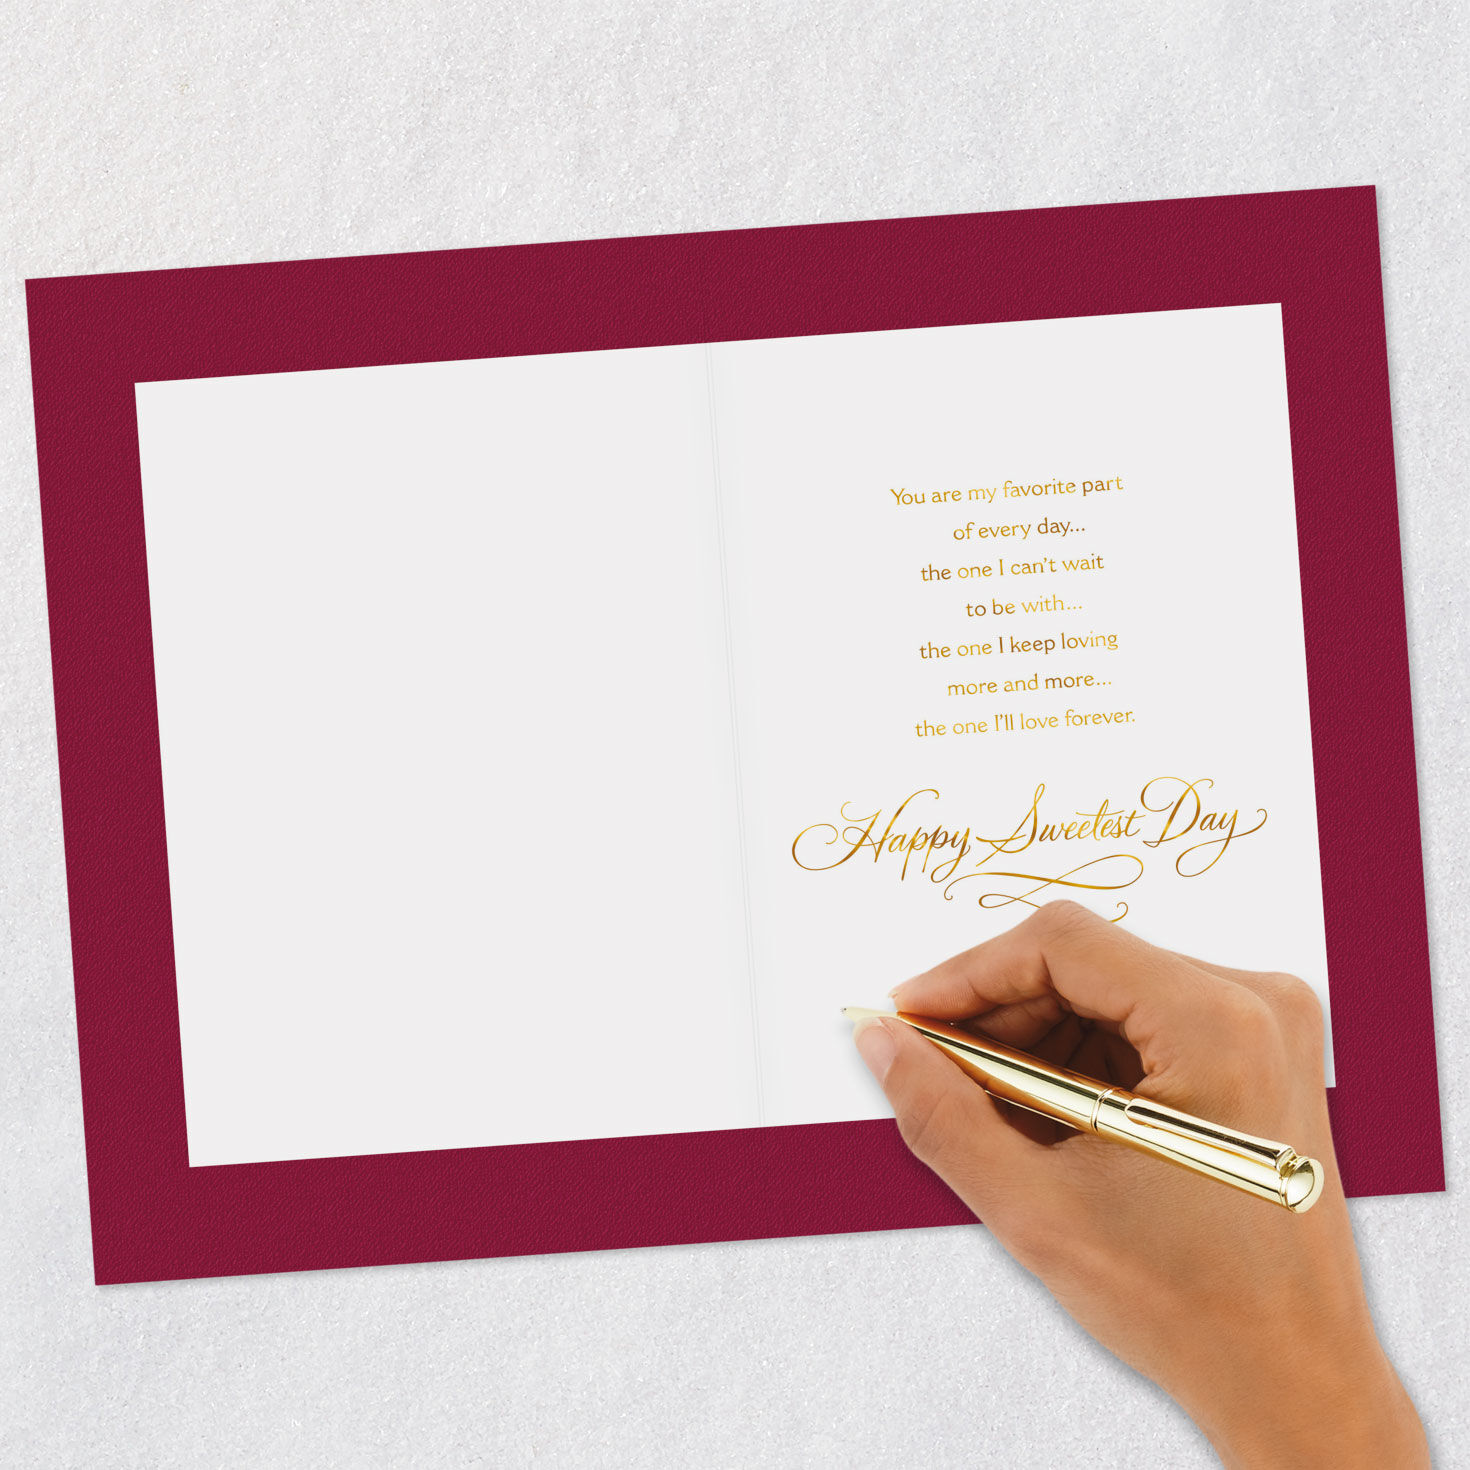 You are my favorite part
of every day...
the one I can't wait
to be with...
the one I keep loving
more and more...
the one I'll love forever.
Happy Sweetest Day